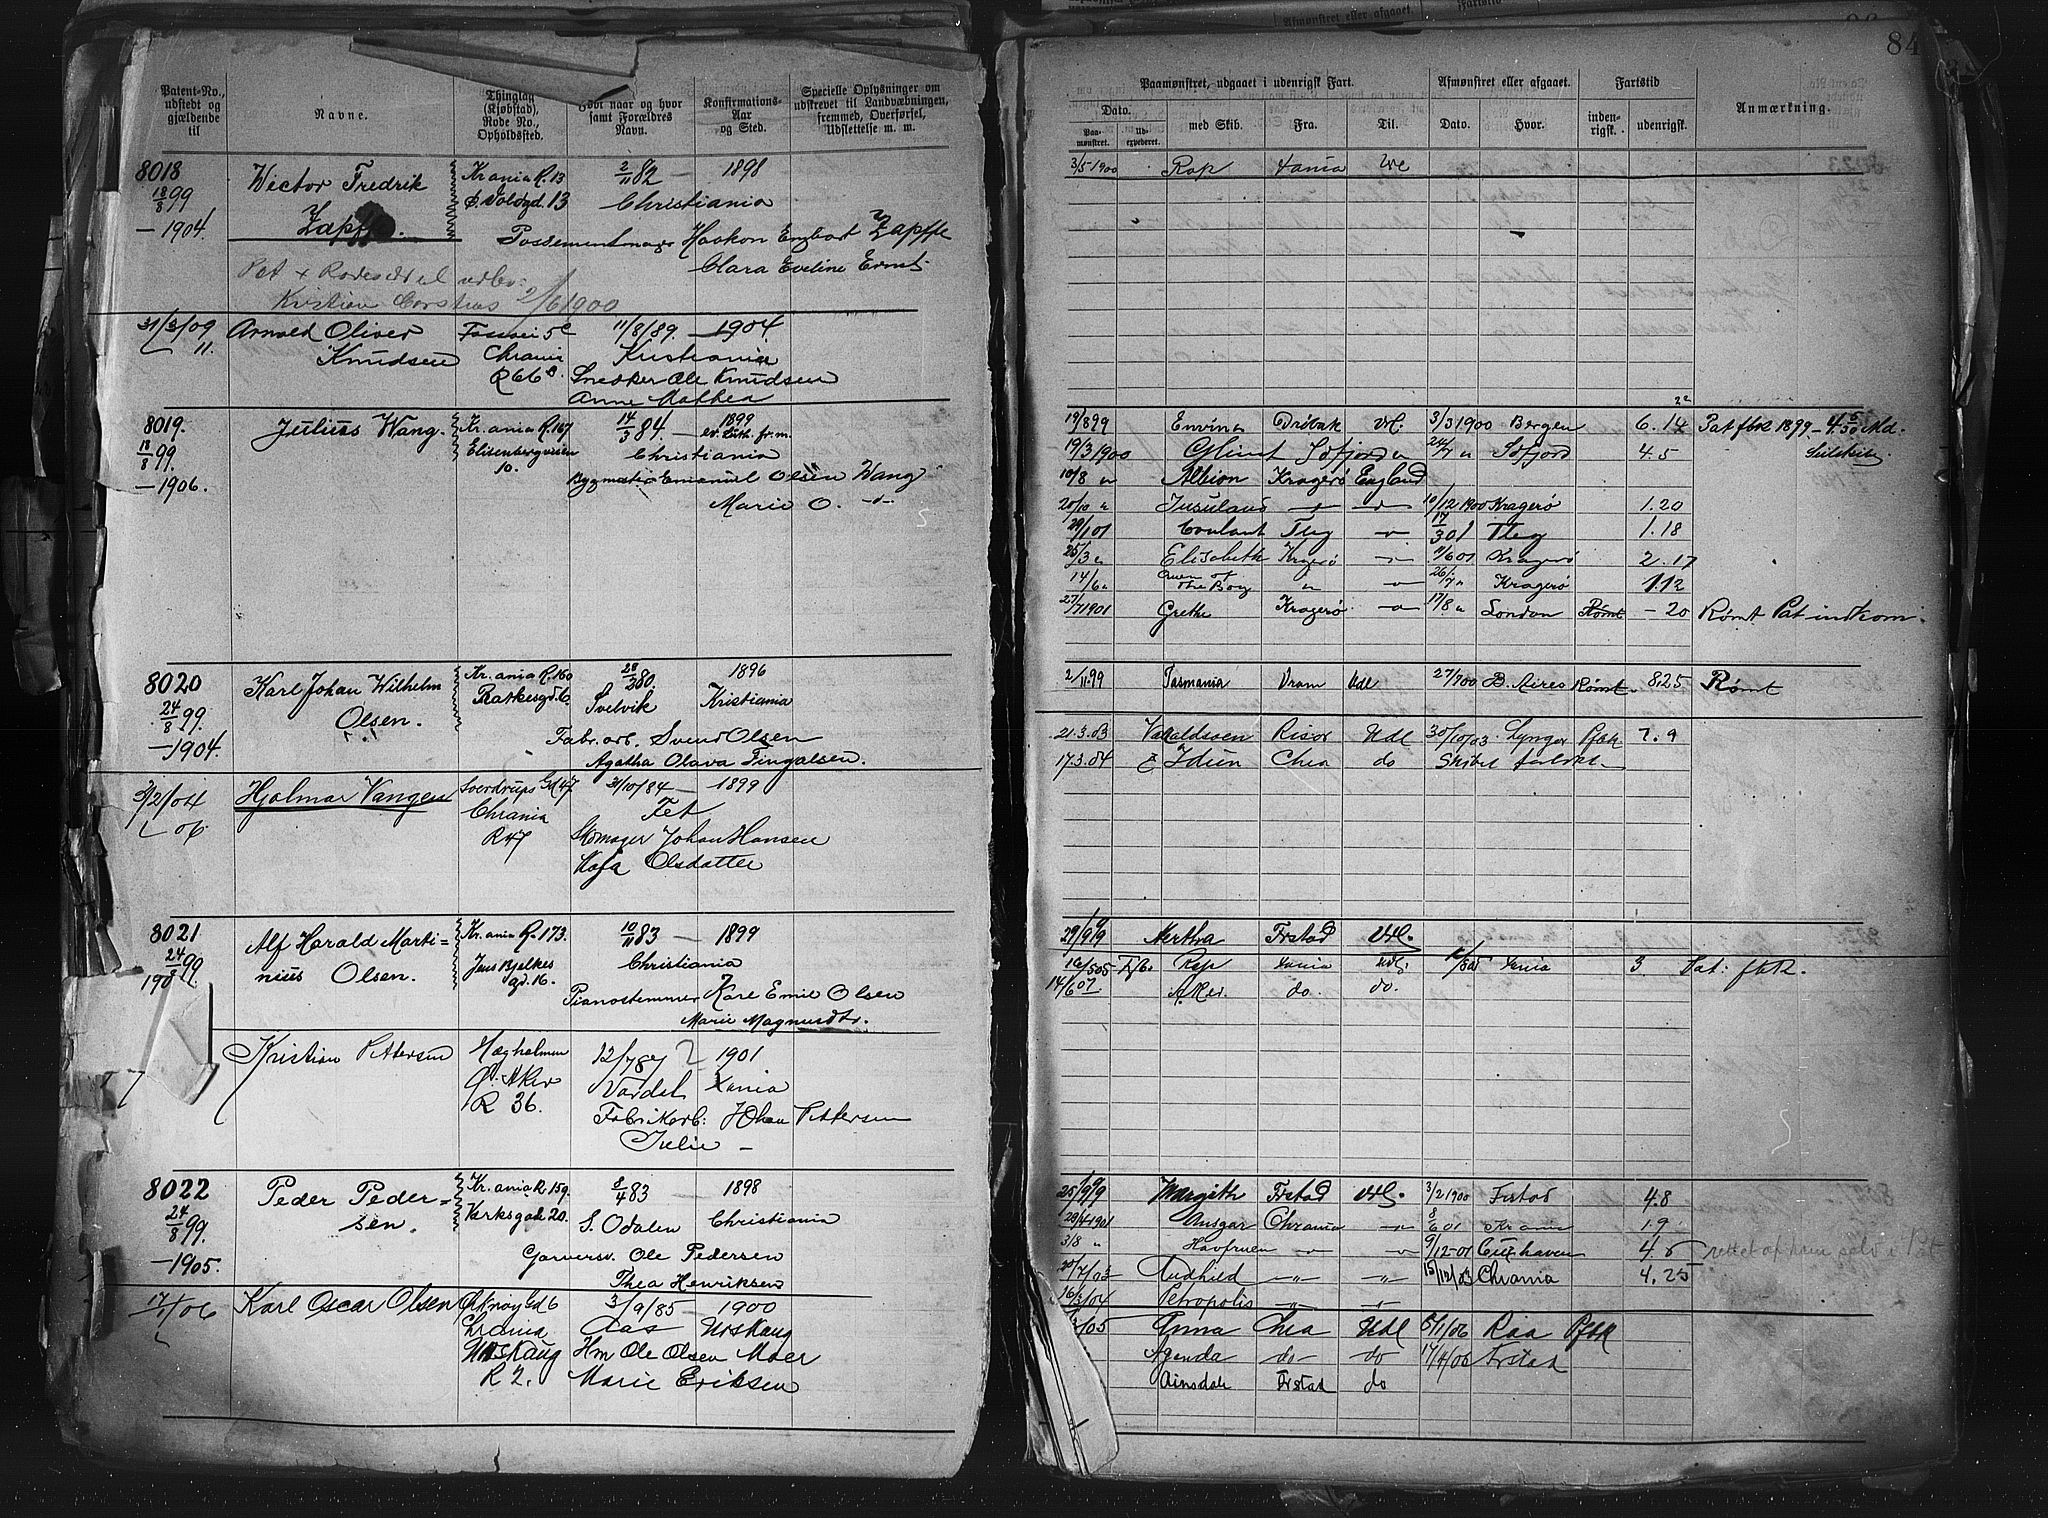 84
Patent-No., udstedt og gjældende til
Navne.
Thinglag (Kjøbstad), Rode No., Opholdssted.
Født naar og hvor samt Forældres Navn.
Konfirmations- Aar og Sted.
Specielle Oplysninger om udskrevet til Landværnbningen, fremmed, Overførsel, Udslettelse m. m.
8018 18/8 99 – 1904.
Victor Fredrik Zapffe.
Kr.ania R. 13
2/11 82 — 1898
Christiania
Possementmager Haakon Engbart Zapffe
Clara Eveline Ernst.
Pat + Rodeseddel udlev:
2/6 1900
31/3/09 11.
Arnold Oliver Knudsen
Fossvei 5c Chrania R 66
11/8/89. — 1904.
Kristiania
Snedker Ole Knudsen
Anne Mathea
8019. 18/8 99. – 1906.
Julius Wang.
Kr.ania R. 167 Elisenbergveien 10.
14/3 84. — 1899 ev. luth. fr. m.
Christiania
Bygmester Emanuel Olsen Wang
Marie O. -"-
8020 24/8 99. – 1904.
Karl Johan Wilhelm Olsen.
Kr.ania R. 160 Ratkesgd. 6.
28/2 80. 1896
Svelvik Kristiania
Fabr. arb. Svend Olsen
Agatha Olava Fingalsen.
3/2/04 06.
Hjalmar Vangen
Sverdrups Gd 47 Chrania R 47
31/10/84 — 1899
Fet
Skomager Johan Hansen
Kaja Olsdatter
8021 24/8 99. 190
Alf Harald Martinius Olsen.
Kr.ania R. 173. Jens Bjelkes gd. 16.
10/11 83 — 1899
Christiania
Pianostemmer Karl Emil Olsen
Marie Magnusdtr.
Kristian Pettersen
Hægholmen Ø. Aker R 36.
12/7 87 2 1901
Xania
Fabrikarb: Johan Pettersen
Julie –
8022 24/8 99. – 1905.
Peder Pedersen.
Kr.ania R. 159. Værksgade 20.
8/4 83 — 1898
S. Odalen Christiania
Garversv. Ole Pedersen
Thea Henriksen
17/1/06
Karl Oscar Olsen
Gd 6 Chrania Urskaug R 2.
3/9/85 — 1900
Aas Urskaug
Hm Ole Olsen Moer
Marie Eriksen
Paamønstret, udgaaet i udenrigsk Fart.
Afmønstret eller afgaaet.
Fartstid
Anmærkning.
Dato.
Paamønstret.
Udexpederet.
med Skib.
Fra.
Til.
Dato.
Hvor.
indenrigsk.
udenrigsk.
3/5 1900 Rap Xania
19/8 99 Drøbak Udl. 3/3 1900 Bergen 6. 14 Pat fbk 1899 –
19/3 1900 Glimt 24/7 " 4. 5
10/8 " Albion Kragerø England
20/10 " -"- -"- 10/12 1900 Kragerø 1. 20
Coulant 1. 18
25/3 " Elisabeth Kragerø -"- 11/6 01 Kragerø 2. 17
14/6 " Queen of the Bay " -"- 26/7 " Kragerø 1. 12
27/7 1901 Grethe Kragerø. -"- 17/8 " London Rømt – 20 Rømt Pat indkom.
2/11. 99 Tasmania Dram Udl 27/ 900 B. Aires Rømt. 8. 25 Rømt
21. 3. 03 Risør Udl 30/10/03 Lyngør Pfbk 7. 9
17. 3. 04 Idun Chra do Skibet forlist.
29/9 99 Nertha Frstad Udl.
16/5 05 Rap Xania Udl. Xania 3 Pat: fbk.
14/6 07 Aker. do. do.
25/9 99 Margith Frstad Udl. 3/2 1900 Frstad 4. 8
28/4 1901 Ansgar Chrania -"- 8/6 01 Krania 1. 9
3/8 " Havfruen -"- -"- 9/12–01 Cuxhaven 4. 6 rettet af ham selv i Pat
20/7/03 Audhild -"- -"- 15/12/03 Chrania 4. 25
16/3/04 Petropolis -"- -"-
/05 Anna Chra Udl 5/1/06 Raa Pfbk
Agenda do do 17/4/06 Frstad
Ainsdale Frstad do